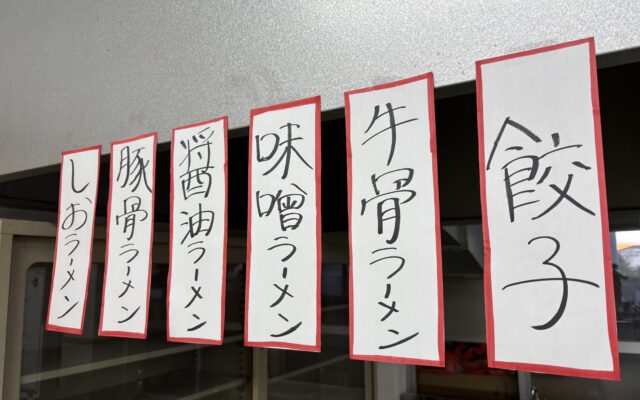 餃子
牛骨ラーメン
味噌ラーメン
醤油ラーメン
豚骨ラーメン
しおラーメン